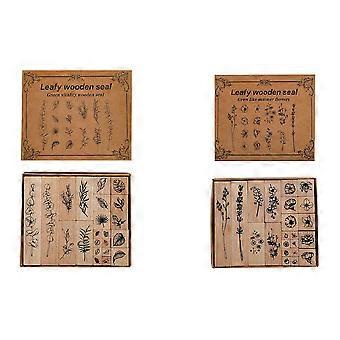 Leafy wooden seal
Green vitality wooden seal
Leafy wooden seal
Grow like summer flowers